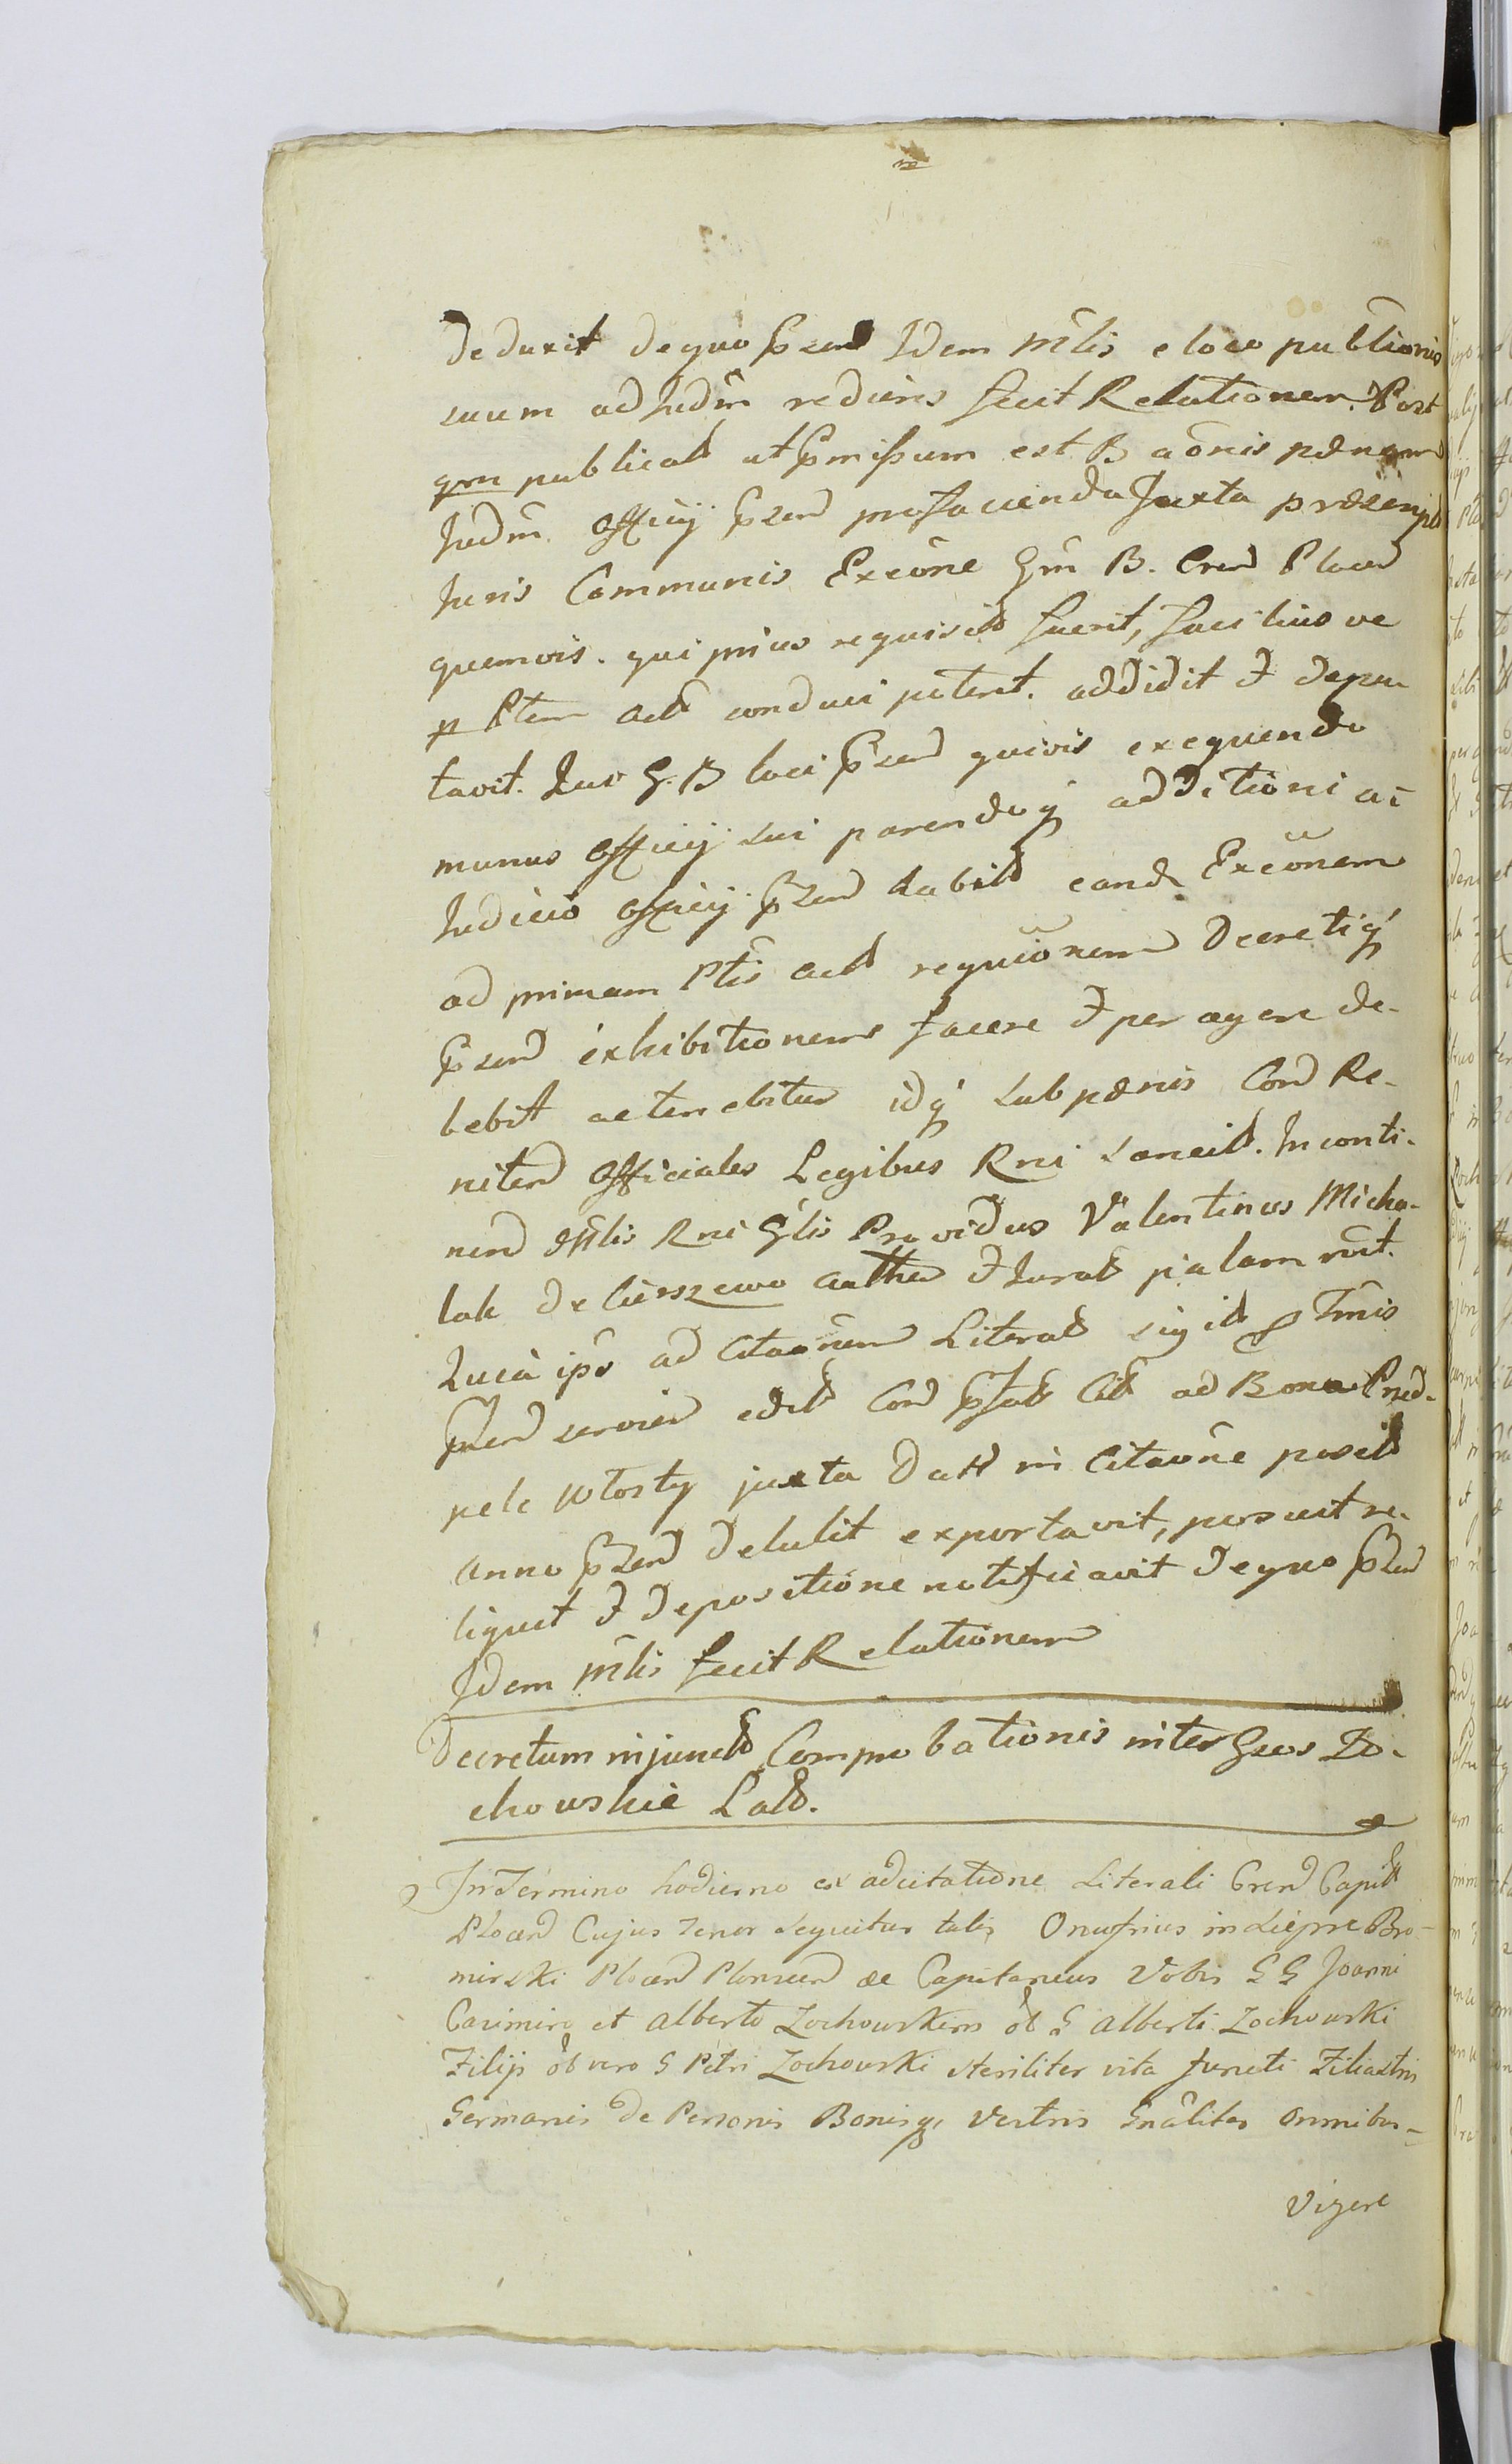 deduxit de quo pzend Idem Mlis e loco publionis
suum ad Judm rediens fecit Relationem. Post
qm publicat ut pmissum est B aonis pænam
Judm officij pzend pro facienda Juxta præscript
Juris Communis Execone Gm B. Cren Plocen
quemvis. qui prius requisit fuerit, facilius ve
p Ptem act conduci poterit. addidit et depu-
tavit. Qui G. B loci pzend quivis exequendo
munus officij sui parendoq additioni ac
Judicio officij pzend habit eand Execonem
ad primam Ptis act requionem Decretiq
pzend exhibitionem facere et peragere de-
bebit ac tenebitur idq sub pænis Con Re-
niten Officiales Legibus Rni sancit. Inconti-
nen Mlis Rni Glis Providus Valentinus Micha-
lak de Ciesszewo authen et Jurat palam rcit.
Quia ips ad Citaonem Literat sigil Tmis
pzend servien edit Con pfat Cit ad Bona Pned-
pele Wlosty juxta Datt in Citaone posit
anno pzend detulit exportavit, posuit re-
liquit et de positione notificavit de quo pzend
Idem Mlis fecit Relationem
Decretum injunct Comprobationis inter Gsos Zo-
chowskie Lat.
In Termino hodierno ex adcitatione Literali Cren Capitt
Plocen Cujus Tenor sequitur talis Onufrius in Liepie Bro-
mirski Plocen Plonscen &c Capitaneus Vobis GG Joanni
Casimiro et Alberto Zochowskim ol G Alberti Zochowski
Filijs ol vero G Petri Zochowski steriliter vita functi Filiastris
Germanis de Personis Bonisq vestris Gnaliter omnibus-
Vigere